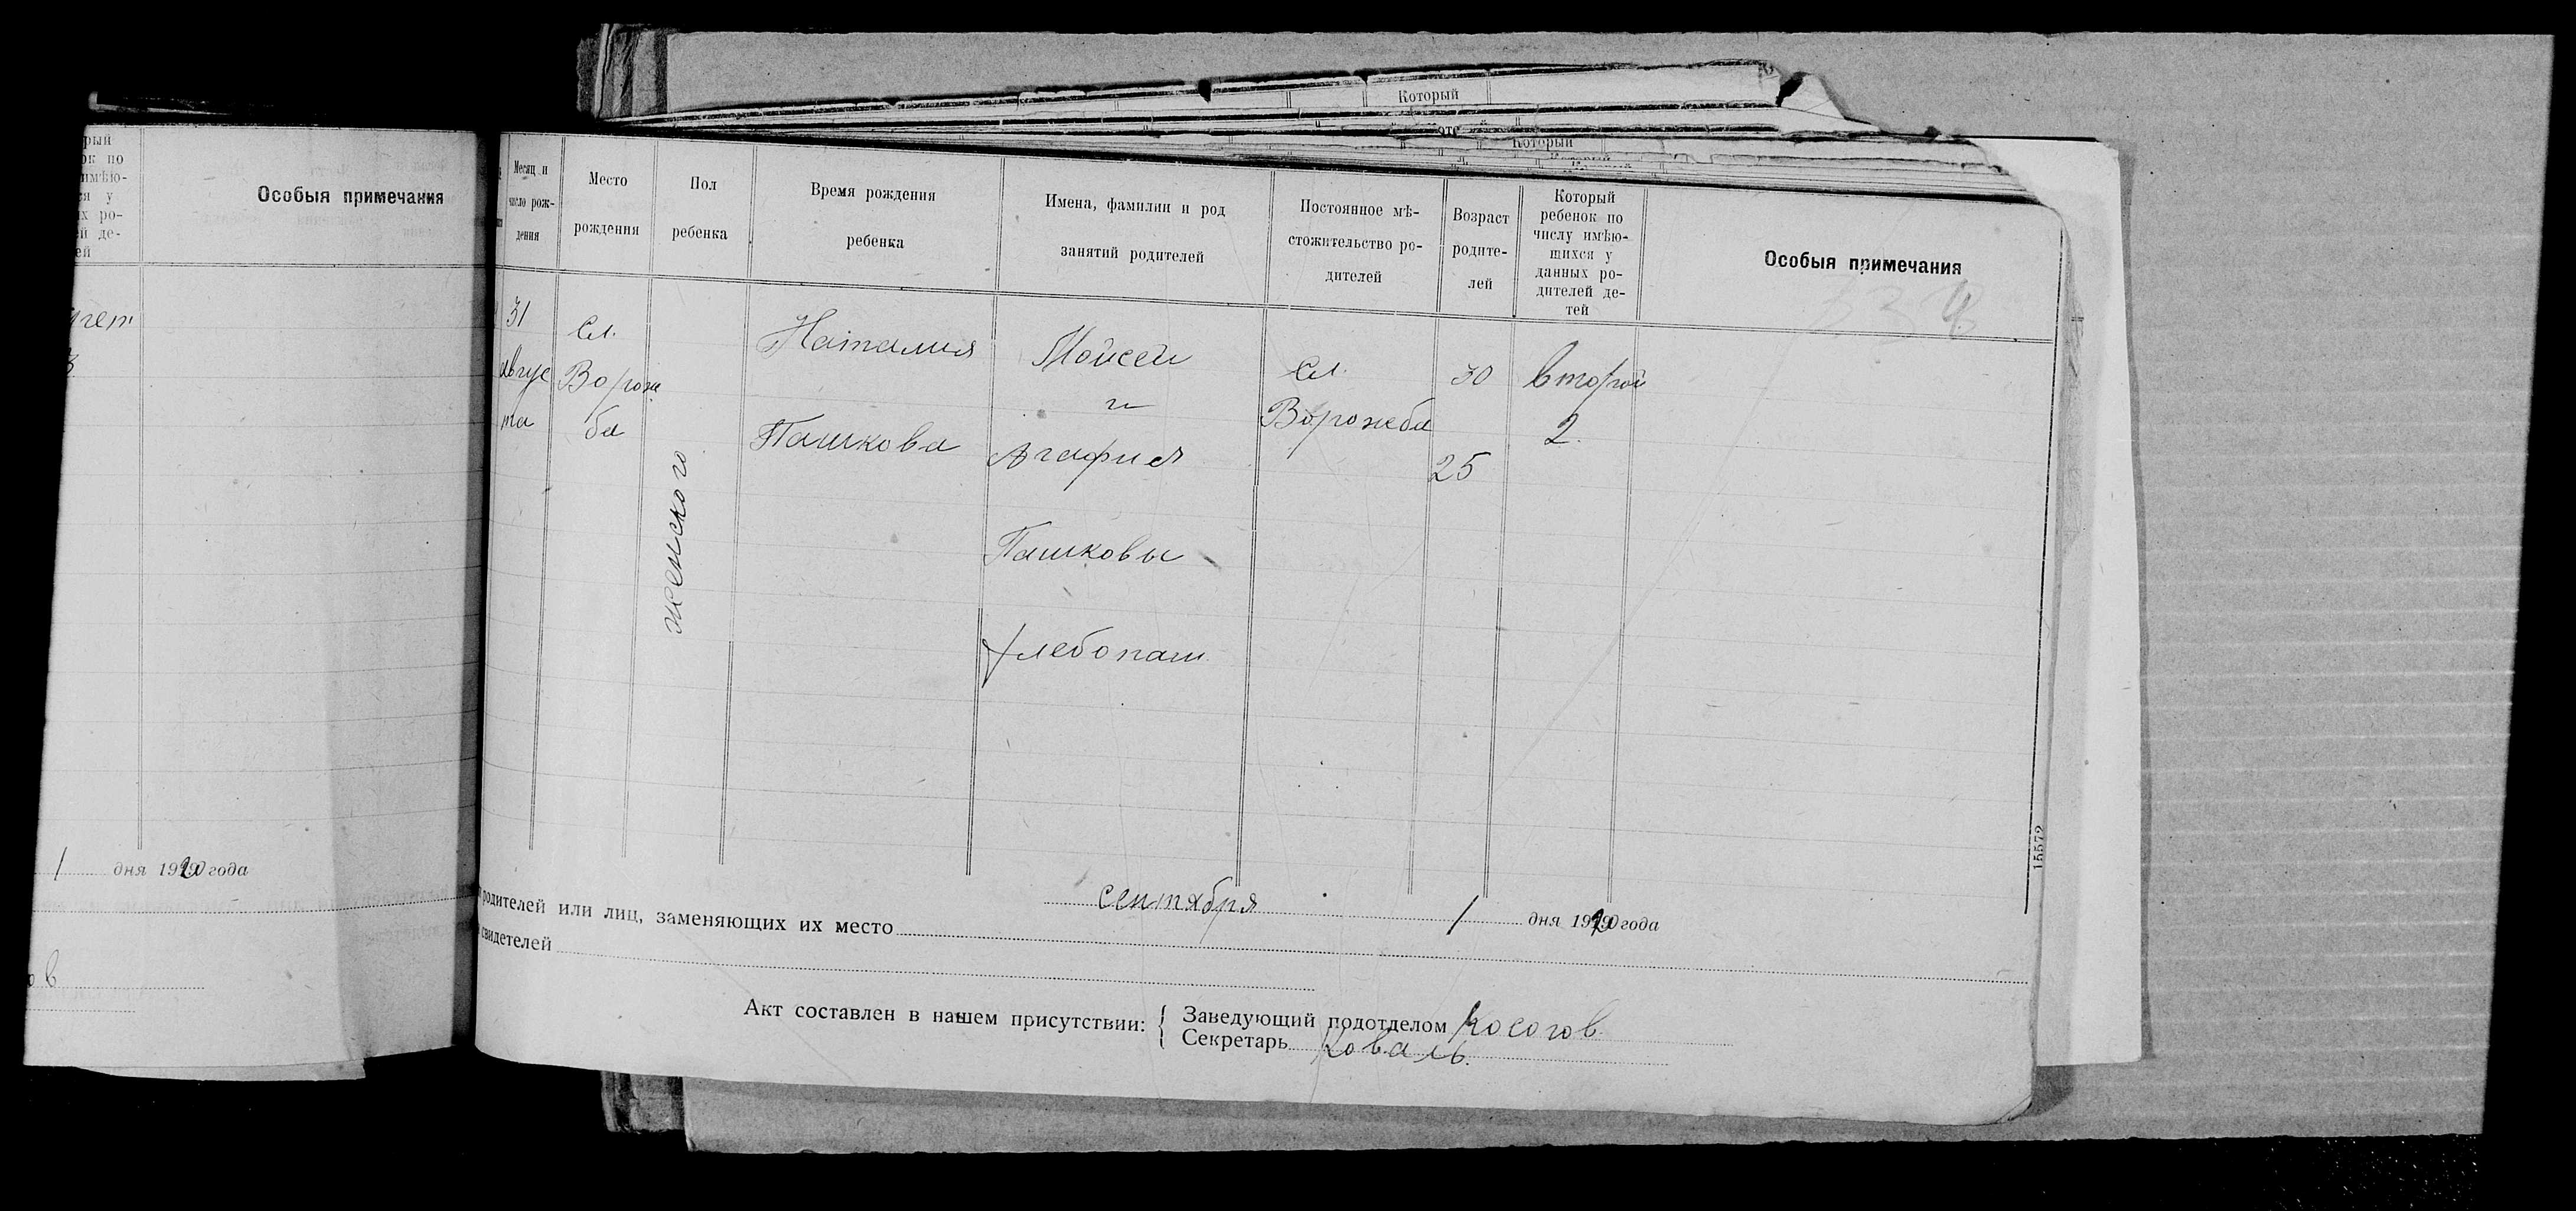 Который
Который
рый
ок по
имѣю-
ся у
ых ро-
ей де-
ей
Особыя примечания
1 дня 1920 года
ов
Месяц и
число рож-
дения
Место
рождения
Пол
ребенка
Время рождения
ребенка
Имена, фамилии и род
занятий родителей
Постоянное мѣ-
стожительство ро-
дителей
Возраст
родите-
лей
Который
ребенок по
числу имѣю-
щихся у
данных ро-
дителей де-
тей
Особыя примечания
31
авгус
та
Сл.
Ворож
ба
женского
Наталия
Пашкова
Мойсей
и
Агафия
Пашковы
Хлебопаш.
Сл.
Ворожба
30
25
второй
2.
15572
сентября 1 дня 1920 года
родителей или лиц, заменяющих их место
свидетелей
Акт составлен в нашем присутствии:
Заведующий подотделом Косогов
Секретарь Коваль.